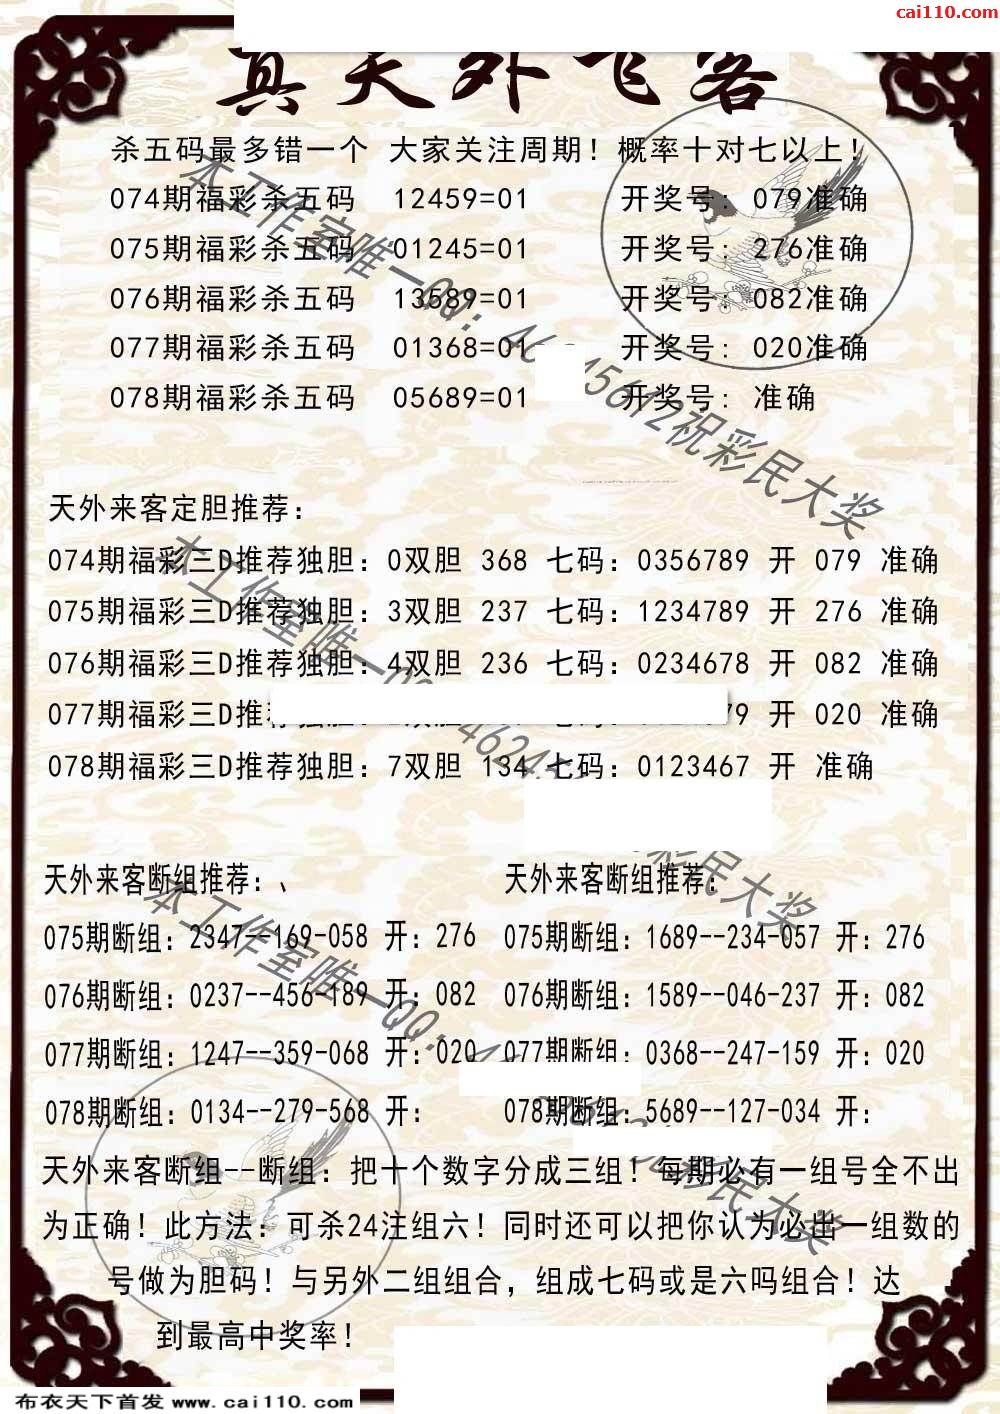 cai110.com
真天外飞客
杀五码最多错一个 大家关注周期！概率十对七以上！
074期福彩杀五码 12459=01 开奖号: 079准确
075期福彩杀五码 01245=01 开奖号: 276准确
076期福彩杀五码 13589=01 开奖号: 082准确
077期福彩杀五码 01368=01 开奖号: 020准确
078期福彩杀五码 05689=01 开奖号: 准确
天外来客定胆推荐:
074期福彩三D推荐独胆: 0双胆 368 七码: 0356789 开 079 准确
075期福彩三D推荐独胆: 3双胆 237 七码: 1234789 开 276 准确
076期福彩三D推荐独胆: 4双胆 236 七码: 0234678 开 082 准确
077期福彩三D推 79 开 020 准确
078期福彩三D推荐独胆: 7双胆 134 七码: 0123467 开 准确
天外来客断组推荐:、 天外来客断组推荐:
075期断组: 2347--169-058 开: 276 075期断组: 1689--234-057 开: 276
076期断组: 0237--456-189 开: 082 076期断组: 1589--046-237 开: 082
077期断组: 1247--359-068 开: 020 077期断组: 0368--247-159 开: 020
078期断组: 0134--279-568 开: 078期断组: 5689--127-034 开:
天外来客断组--断组: 把十个数字分成三组！每期必有一组号全不出
为正确！此方法: 可杀24注组六！同时还可以把你认为必出一组数的
号做为胆码！与另外二组组合，组成七码或是六吗组合！达
到最高中奖率！
本工作室唯一QQ: 祝彩民大奖
本工作室唯一 彩民大奖
本工作室唯一QQ: 彩民大奖
布衣天下首发 www.cai110.com